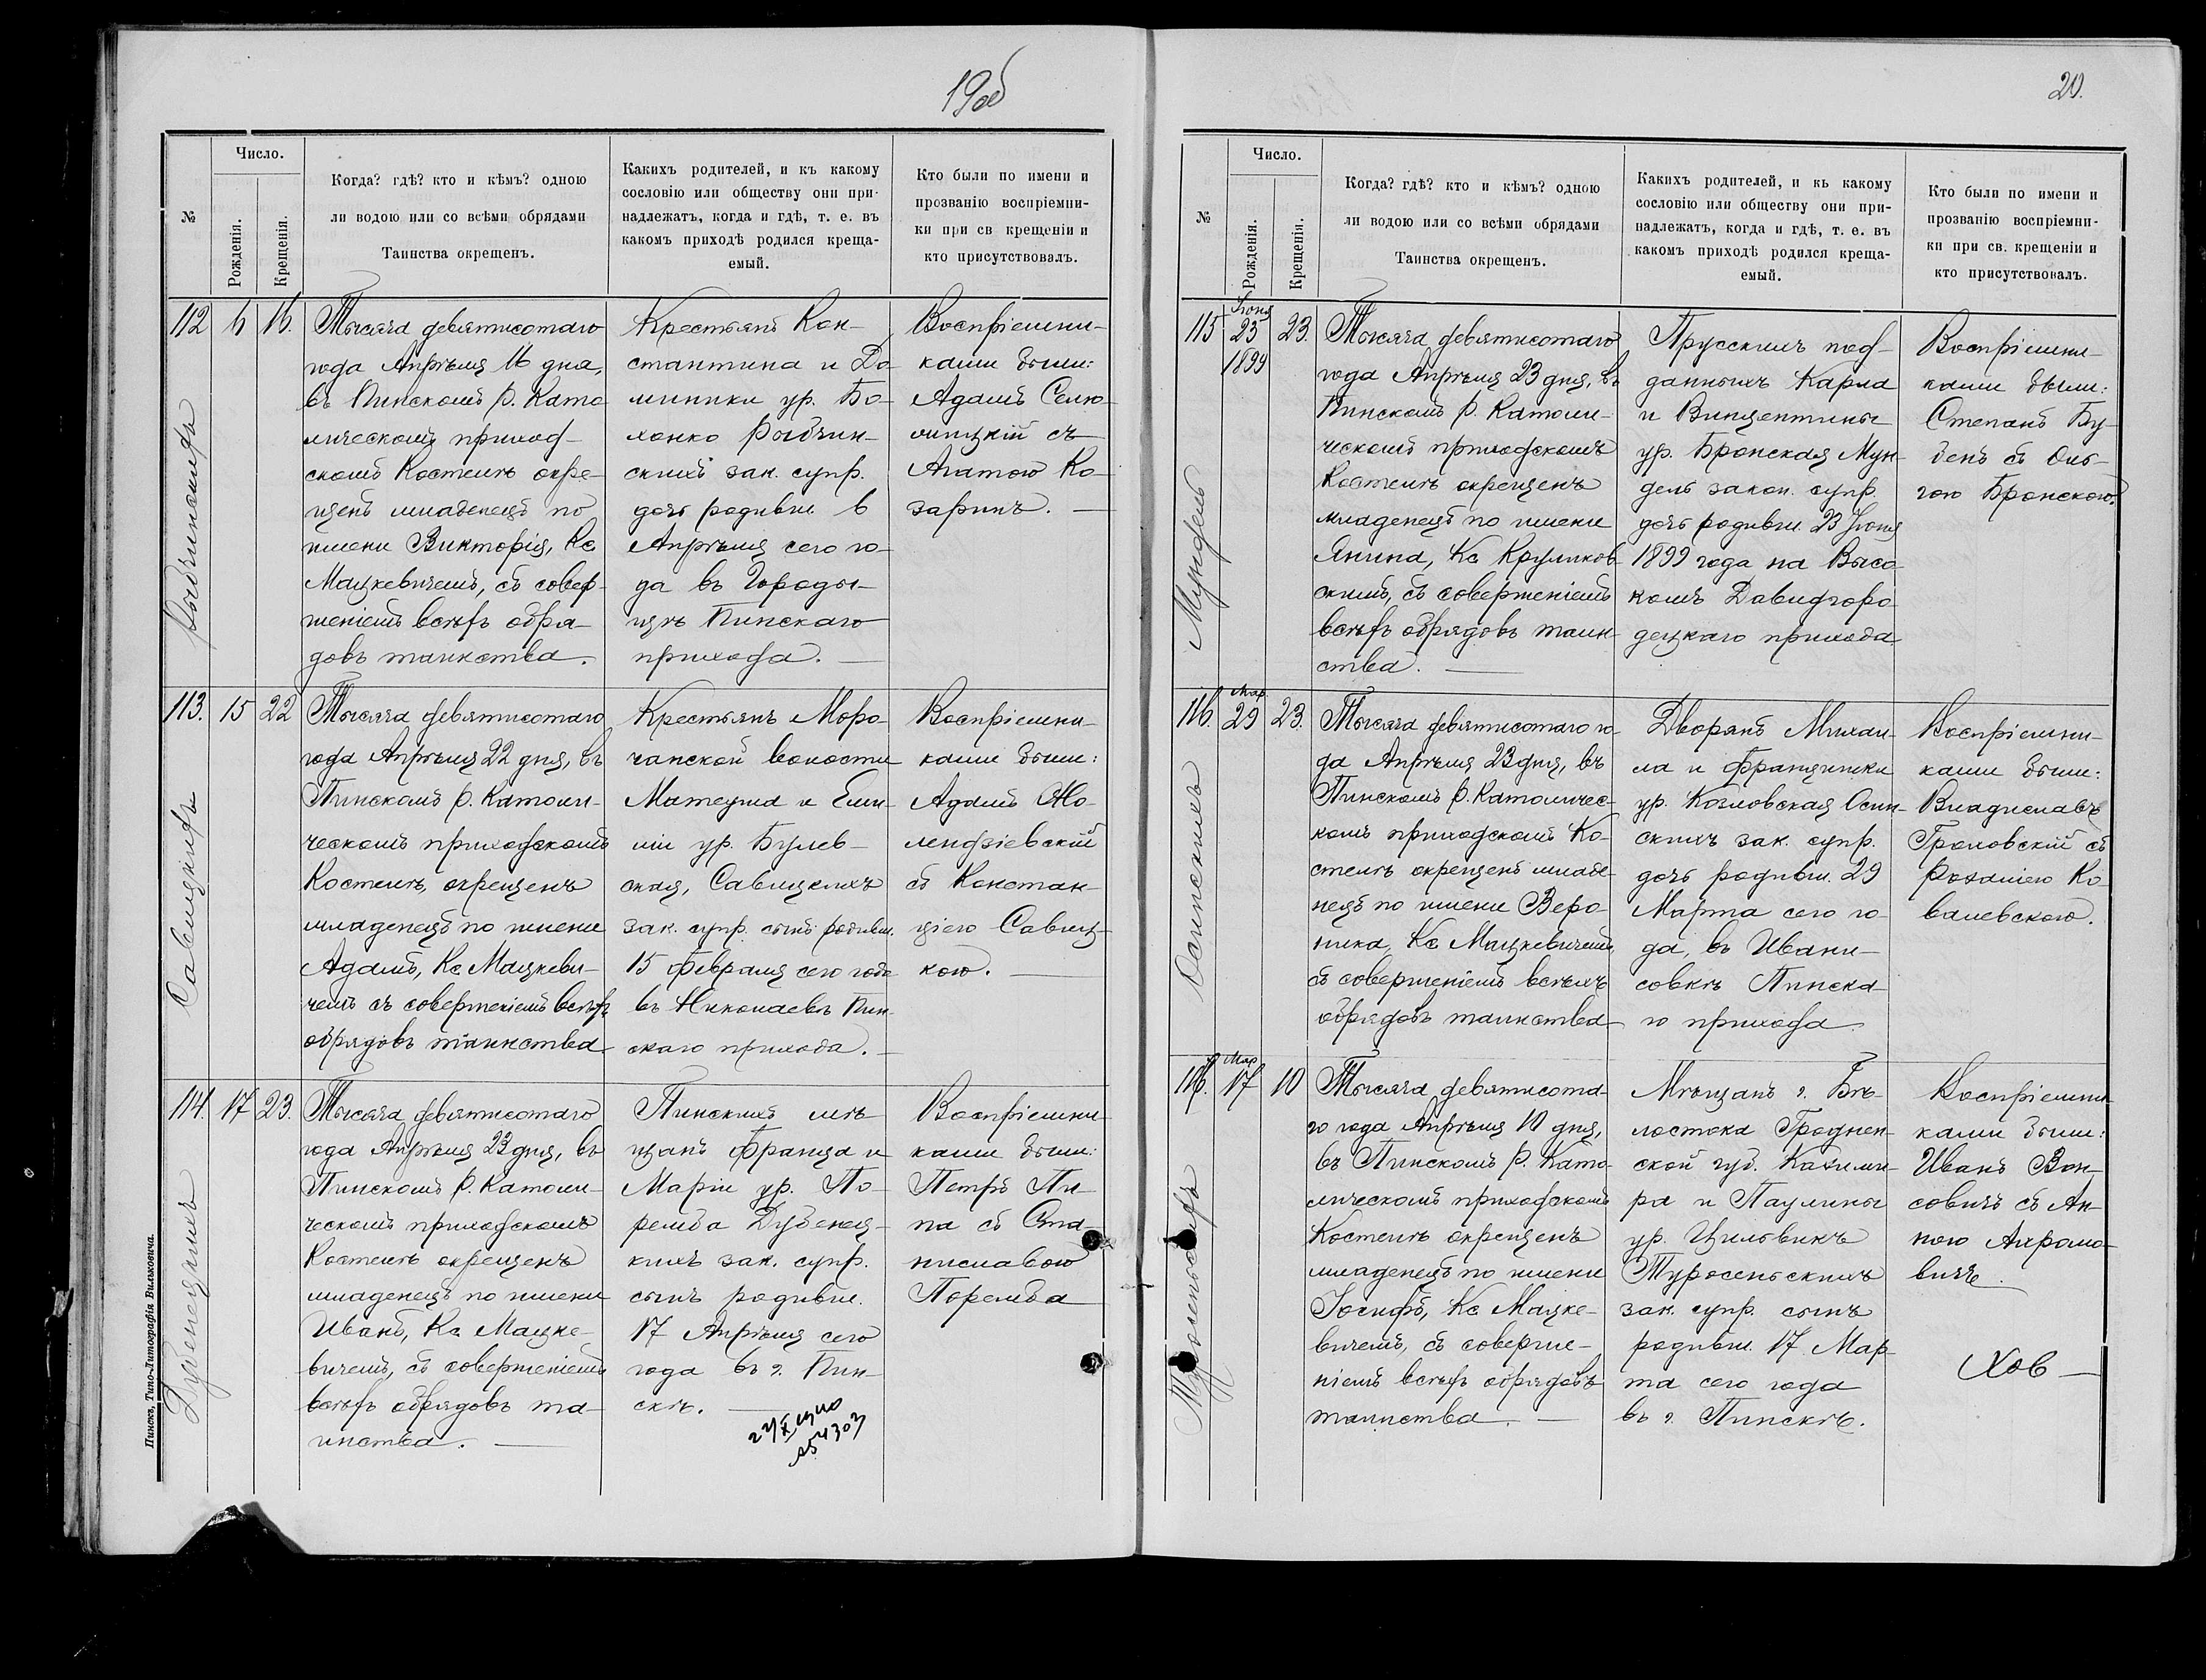 19об
№
Число.
Рожденія.
Крещенія.
Когда? гдѣ? кто и кѣмъ? одною
ли водою или со всѣми обрядами
Таинства окрещенъ.
Какихъ родителей, и къ какому
сословію или обществу они при-
надлежатъ, когда и гдѣ, т. е. въ
какомъ приходѣ родился креща-
емый.
Кто были по имени и
прозванію воспріемни-
ки при св крещеніи и
кто присутствовалъ.
112
6
16.
Тысяча девятисотаго
года Апрѣля 16 дня,
въ Пинскомъ Р. Като
лическомъ приход-
скомъ Костелѣ окре-
щенъ младенецъ по
имени Викторія, Кс
Мацкевичемъ, съ совер-
шеніемъ всѣхъ обря-
довъ таинства.
Крестьянъ Кон-
стантина и До
миники ур. Бо-
ханко Рыбчин-
скихъ зак. супр.
дочь родивш. 6
Апрѣля сего го-
да въ Городы-
щѣ Пинскаго
прихода.
Воспріемни-
ками были:
Адамъ Селю-
лицкій съ
Агатою Ко-
заринъ.
113.
15
22
Савицкихъ
Тысяча девятисотаго
года Апрѣля 22 дня, въ
Пинскомъ Р. Католи-
ческомъ приходскомъ
Костелѣ, окрещенъ
младенецъ по имени
Адамъ, Кс. Мацкеви-
чемъ съ совершеніемъ всѣхъ
обрядовъ таинства
Крестьянъ Моро-
чанской волости
Матеуша и Еми-
ліи ур. Булев-
ская, Савицкихъ
зак. супр. сынъ родивш.
15 Февраля сего года
въ Николаевѣ Пин-
скаго прихода.
Воспріемни-
ками были:
Адамъ
съ Констан-
ціею Савиц-
кою.
114.
17
23.
Дубенецкихъ
Тысяча девятисотаго
года Апрѣля 23 дня, въ
Пинскомъ Р. Католи-
ческомъ приходскомъ
Костелѣ окрещенъ
младенецъ по имени
Иванъ, Кс. Мацке-
вичемъ, съ совершеніемъ
всѣхъ обрядовъ та-
инства.
Пинскихъ мѣ-
щанъ Франца и
Маріи ур. По-
ремба Дубенец-
кихъ зак. супр.
сынъ родивш.
17 Апрѣля сего
года въ г. Пин-
скѣ.
Воспріемни-
ками были:
Петръ Пи-
па съ Ста-
ниславою
Поремба
Пинскъ, Типо-Литографія Вильковича.
20.
№
Число.
Рожденія.
Крещенія.
Когда? гдѣ? кто и кѣмъ? одною
ли водою или со всѣми обрядами
Таинства окрещенъ.
Какихъ родителей, и кь какому
сословію или обществу они при-
надлежатъ, когда и гдѣ, т. е. въ
какомъ приходѣ родился креща-
емый.
Кто были по имени и
прозванію воспріемни-
ки при св. крещеніи и
кто присутствовалъ.
115
Іюня
23
1899
23.
Мундель
Тысяча девятисотаго
года Апрѣля 23 дня, въ
Пинскомъ Р. Католи-
ческомъ приходскомъ
Костелѣ окрещенъ
младенецъ по имени
Янина, Кс Круликов-
скимъ, съ совершеніемъ
всѣхъ обрядовъ таин-
ства.
Прусскихъ под-
данныхъ Карла
и Винцентины
ур. Бронская Мун-
дель закон. супр.
дочь родивш. 23 Іюня
1899 года на Высо-
комъ Давидгоро-
децкаго прихода
Воспріемни-
ками были:
Степанъ Бу-
бенъ съ Оль-
гою Бронскою.
116.
Мар.
29
23.
Осинскихъ
Тысяча девятисотаго го-
да Апрѣля 23 дня, въ
Пинскомъ Р. Католичес-
комъ приходскомъ Ко-
стелѣ окрещенъ младе-
нецъ по имени Веро-
ника, Кс Мацкевичемъ
съ совершеніемъ всѣхъ
обрядовъ таинства
Дворянъ Михаи-
ла и Францишки
ур. Козловская Осин-
скихъ зак. супр.
дочь родивш. 29
Марта сего го-
да, въ Ивани-
совкѣ Пинска-
го прихода.
Воспріемни-
ками были:
Владиславъ
Громовскій съ
Розаліею Ко-
валевскою.
Мар
17
10
Тысяча девятисота-
го года Апрѣля 10 дня,
въ Пинскомъ Р. Като-
лическомъ приходскомъ
Костелѣ окрещенъ
младенецъ по имени
Іосифъ, Кс Мацке-
вичемъ, съ соверше-
ніемъ всѣхъ обрядовъ
таинства.
Мѣщанъ г. Бѣ-
лостока Гроднен-
ской губ. Казими-
ра и Паулины
ур. Цильвикъ
Туросенскихъ
зак. супр. сынъ
родивш. 17 Мар-
та сего года
въ г. Пинскѣ.
Воспріемни-
ками были:
Иванъ Вон-
совичъ съ Ан-
ною Ахромо-
вичъ.